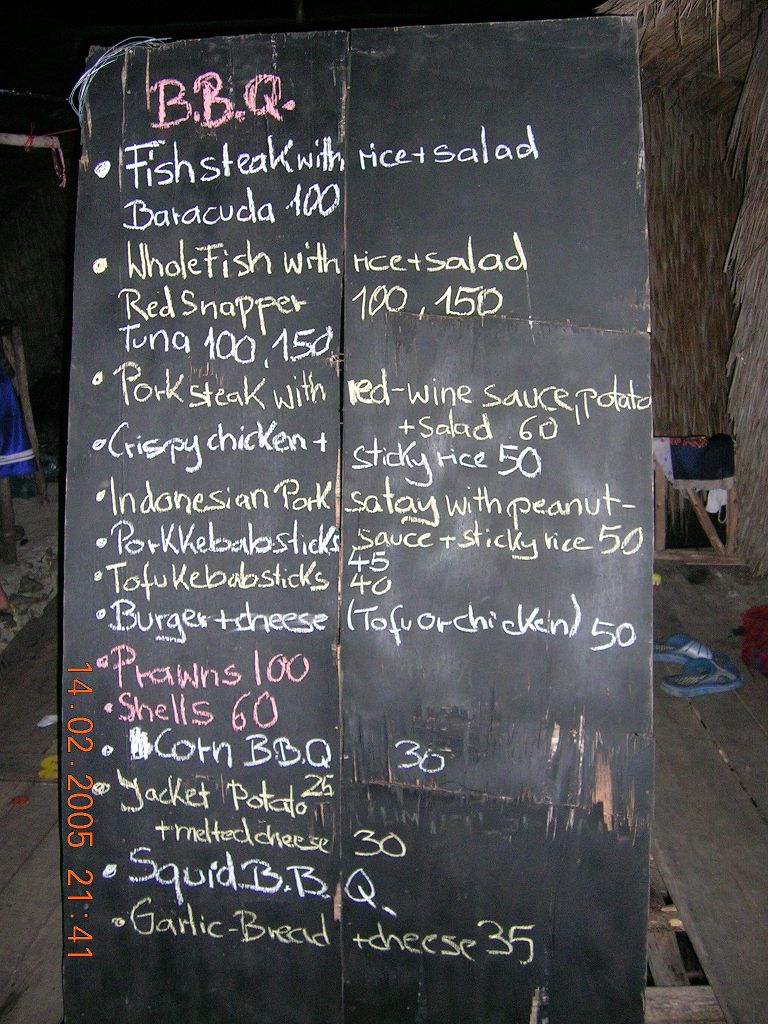 B.B.Q.
• Fishsteak with rice + salad
Baracuda 100
• Whole Fish with rice + salad
Red Snapper 100, 150
Tuna 100, 150
• Pork steak with red-wine sauce, potato
+ salad 60
• Crispy chicken + sticky rice 50
• Indonesian Pork satay with peanut-
sauce + sticky rice 50
• Pork Kebabsticks 45
• Tofu Kebabsticks 40
• Burger + cheese (Tofu or chicken) 50
• Prawns 100
• Shells 60
• Corn B.B.Q 30
• Jacket Potato 25
+ melted cheese 30
• Squid B.B.Q.
• Garlic-Bread + cheese 35
14.02.2005 21:41